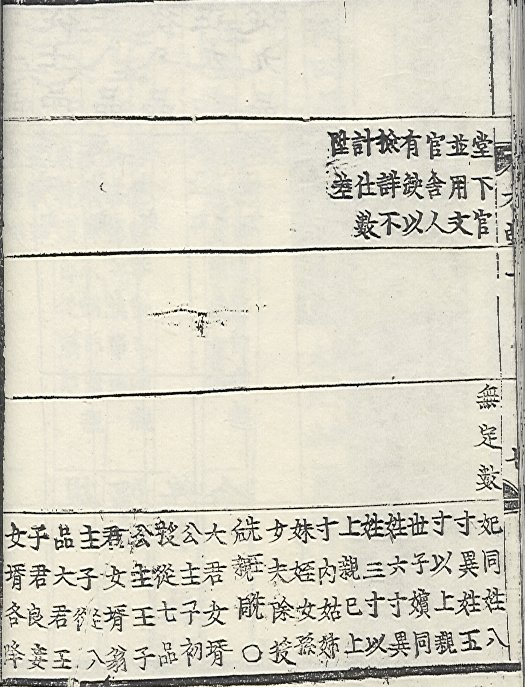 堂下官
並用文
官舍人
有缺以
檢詳不
計仕數
陞差
無定數
妃同姓八
寸異姓五
寸以上親
世子嬪同
姓六寸異
姓三寸以
上親已上
寸內姑姊
妹姪女孫
女夫除授
王親〇
大君女壻
公主子初
授從七品
公主王子
君女壻翁
主子從八
品大君王
子君良妾
女壻各降